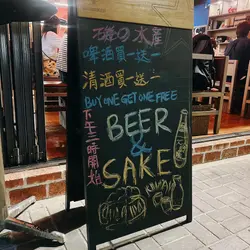 の水產
啤酒買一送一
清酒買一送二
BUY ONE GET ONE FREE
下午三時開始
BEER
&
SAKE